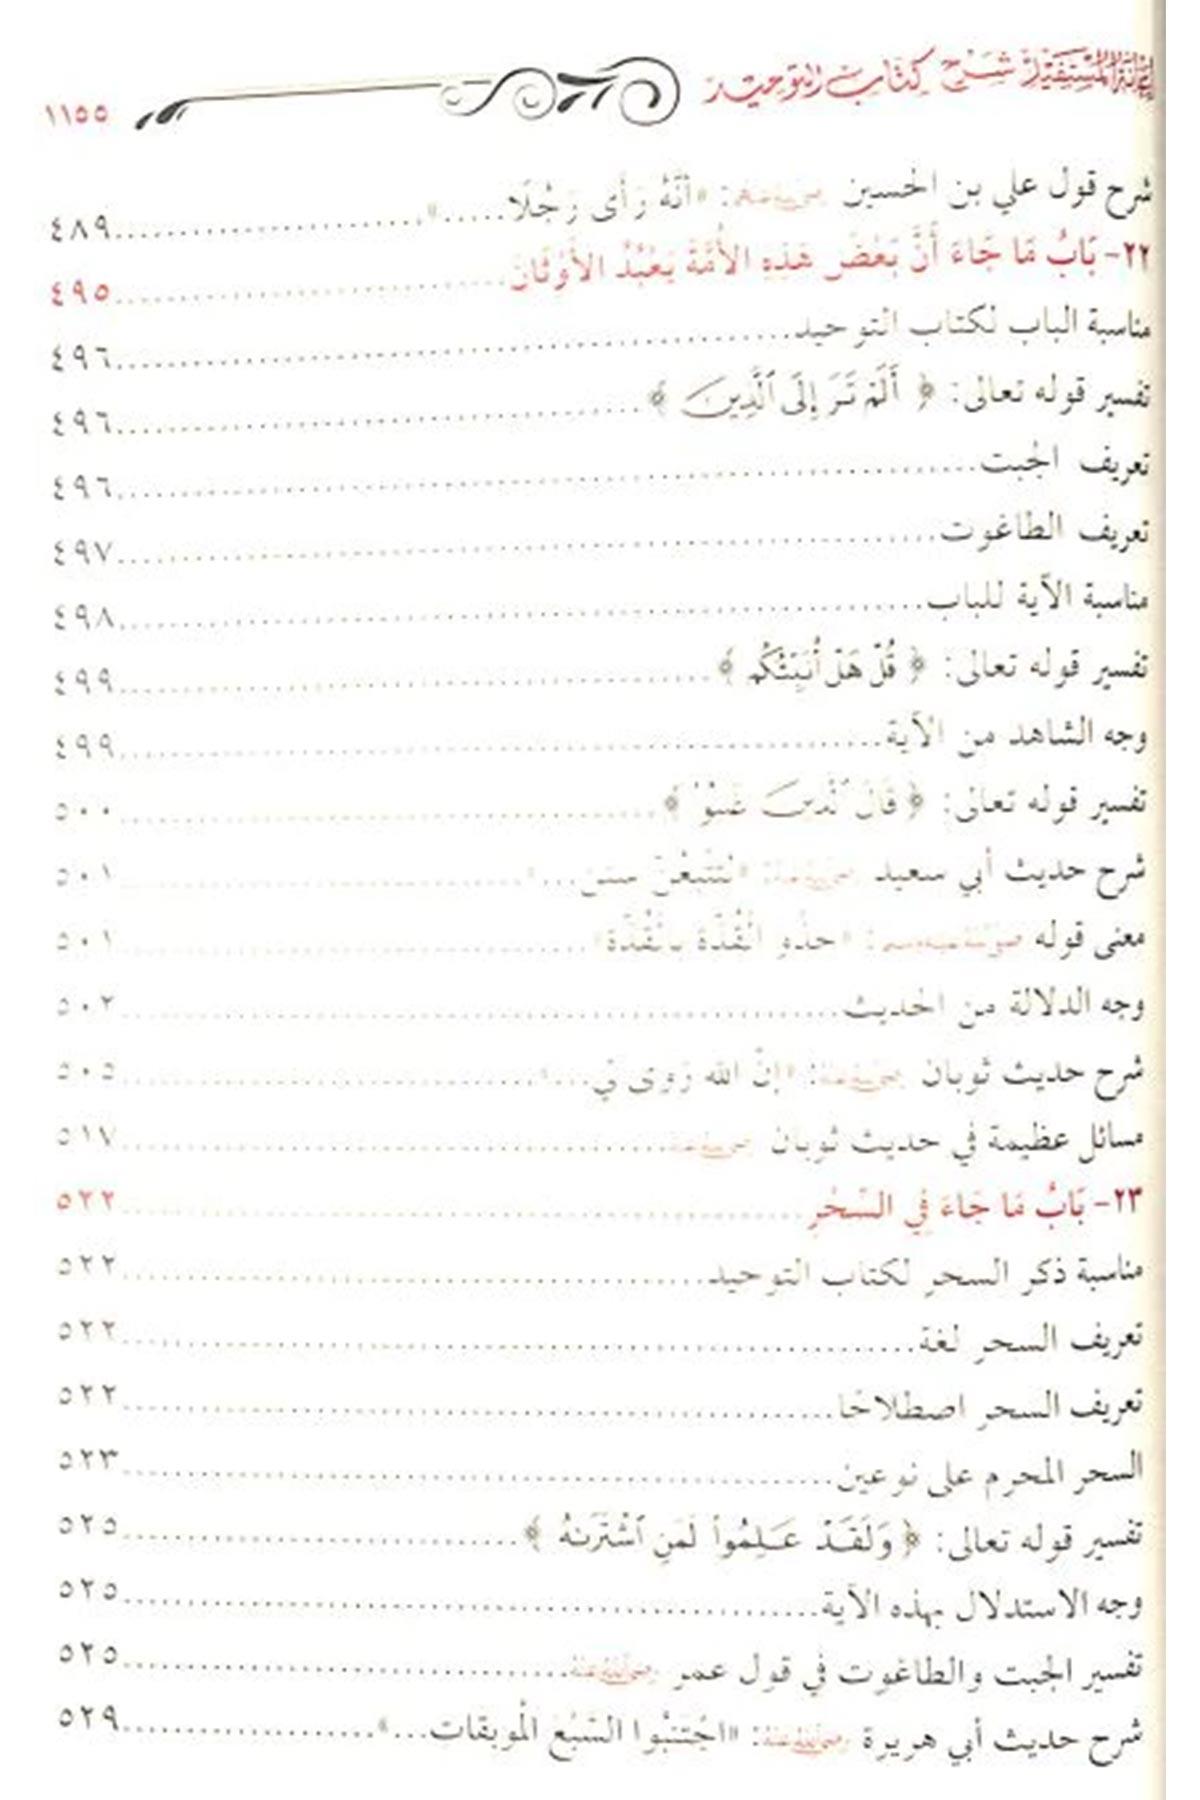 إعانة المستفيد شرح كتاب التوحيد ١١٥٥
شرح قول علي بن الحسين رضي الله عنه: «أَنَّهُ رَأَى رَجُلًا.....»..............................٤٨٩
٢٢- بَابُ مَا جَاءَ أَنَّ بَعْضَ هَذِهِ الأُمَّةَ يَعْبُدُ الأَوْثَانَ..............................٤٩٥
مناسبة الباب لكتاب التوحيد..............................٤٩٦
تفسير قوله تعالى: ﴿ أَلَمْ تَرَ إِلَى ٱلَّذِينَ ﴾..............................٤٩٦
تعريف الجبت..............................٤٩٦
تعريف الطاغوت..............................٤٩٧
مناسبة الآية للباب..............................٤٩٨
تفسير قوله تعالى: ﴿ قُلْ هَلْ أُنَبِّئُكُم ﴾..............................٤٩٩
وجه الشاهد من الآية..............................٤٩٩
تفسير قوله تعالى: ﴿ قَالَ ٱلَّذِينَ غَلَبُوا۟ ﴾..............................٥٠٠
شرح حديث أبي سعيد رضي الله عنه: «لتَتَّبعُنَّ سنن...»..............................٥٠١
معنى قوله صلى الله عليه وسلم: «حذْو الْقُذَّة بالْقُذَّة»..............................٥٠١
وجه الدلالة من الحديث..............................٥٠٢
شرح حديث ثوبان رضي الله عنه: «إنَّ الله زوى لي...»..............................٥٠٥
مسائل عظيمة في حديث ثوبان رضي الله عنه..............................٥١٧
٢٣- بَابُ مَا جَاءَ فِي السِّحْرِ..............................٥٢٢
مناسبة ذكر السحر لكتاب التوحيد..............................٥٢٢
تعريف السحر لغة..............................٥٢٢
تعريف السحر اصطلاحًا..............................٥٢٢
السحر المحرم على نوعين..............................٥٢٣
تفسير قوله تعالى: ﴿ وَلَقَدْ عَلِمُوا۟ لَمَنِ ٱشْتَرَىٰهُ ﴾..............................٥٢٥
وجه الاستدلال بهذه الآية..............................٥٢٥
تفسير الجبت والطاغوت في قول عمر رضي الله عنه..............................٥٢٥
شرح حديث أبي هريرة رضي الله عنه: «اجْتَنبُوا السَّبْع الْموبقات...»..............................٥٢٩